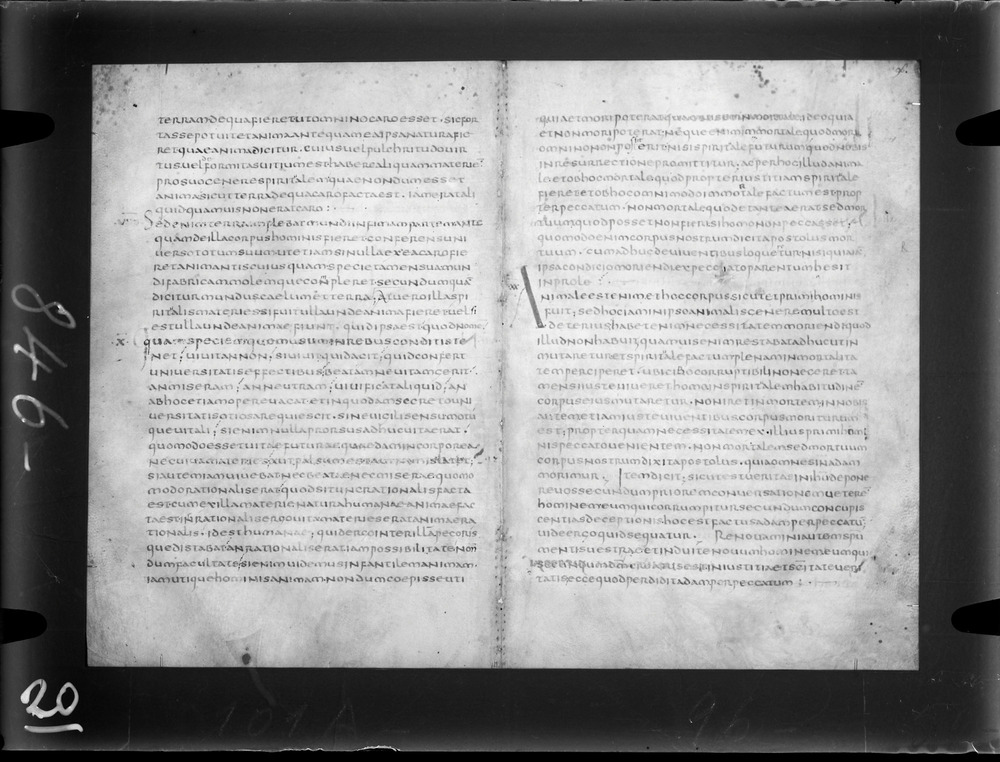 terramdequafieretutomninocaroesset · sicfor
tassepotuitetanimaantequameaipsanaturafie
retquaeanimadicitur · cuiusuelpulchritudouir
tusuelformitasuitiumesthabereàliquammaterie
prosuogenerespiritalemquaenondumesset
animasicutterradequacarofactaest · iameratali
quidquamuisnoneratcaro :
Sedenimterrampleb​atmundiinfimampartemante
quamdeillacorpushominisfieretconferensuni
uersototumsuumutetiamsinullaexeacarofie
retanimantiscuiusquamspecietamensuamun
difabricammolemquecompleretsecundumqua
diciturmunduscaelumetterra ; Atueroillaspi
ritalismateriessifuitullaundeanimafieretuelsi
estullaundeanimaefiunt · quidipsaestquodnom
X · quaespeciesquomususinrebusconditiste
net ; uiuitannon ; siuiuitquidagit ; quidconfert
uniuersitatiseffectibus ; beatamneuitamgerit
anmiseram ; anneutram ; uiuificataliquid ; an
abhocetiamoperevacatetinquodamsecretouni
uersitatisotiosarequiescit · sineuigilisensumotu
queuitali ; sienimnullaprorsusadhucuitaerat ·
quomodoessetuitaefuturaequaedamincorporea
siautemiamuiuebatnecbeataenecmiseraequomo
modorationaliserat ; quodsituncrationalisfacta
estcumexillamaterianaturahumanaeanimaefac
taestinrationalisergouitamaterieseratanimaera
tionalis · idesthumanae ; quidergointerillapecoris
quedistabat ; anrationaliseratiampossibilitatenon
dumfacultate ; sienimuidemusinfantilemanimam ·
iamutiquehominisanimamnondumcoepisseuti
quiaetmoripoteratquamuisutinmortale ; ideoquia
etnonmoripoterat · nequeenimimmortalequodmori
omninononposseterit · nisispiritalefuturumquodnobis
inresurrectionepromittitur · acperhocilludanima
leetobhocmortalequodpropteriustitiamspiritale
fieretetobhocomnimodoimmortalefactumestprop
terpeccatum · nonmortalequodetanteaeratsedmor
tuumquodpossetnonfierisihomononpeccasset ;
quomodoenimcorpusnostrumdicitapostolusmor
tuum · cumadhucdeuiuentibusloqueturnisiquiaia
ipsacondiciomoriendiexpeccatoparentumhesit
inprole :
Animaleestenimethoccorpussicutetprimihominis
fuit ; sedhociaminipsoanimalisgeneremultoest
deteriushabetenimnecessitatemmoriendiquod
illudnonhabuit ; quamuisenimrestabatadhucutin
mutareturetspiritalefactumplenaminmortalita
temperciperet · ubicibocorruptibilinonegeretta
mensiiustuiuerethomoinspiritalemhabitudine
corpuseiusmutaretur · nonirétinmortem ; innobis
autemetiamiusteuiuentibuscorpusmoriturum
est ; propterquamnecessitatemex · illiusprimihomi
nispeccatouenientem · nonmortalemsedmortuum
corpusnostrumdixitapostolus · quiaomnesinadam
morimur · Itemdicit ; sicutestueritasinihudepone
reuossecundumprioremconuersationemuetere
hominemeumquicorrumpitursecundumconcupis
centiasdeceptionishocestfactusadamperpeccatu
uideergoquidsequatur · Renouaminiautemspi
mentisuestraeetinduitenouumhominemeumqui
secundumdeumcreatusestiniustitiaetscitateueri
tatiseccequodperdiditadamperpeccatum :